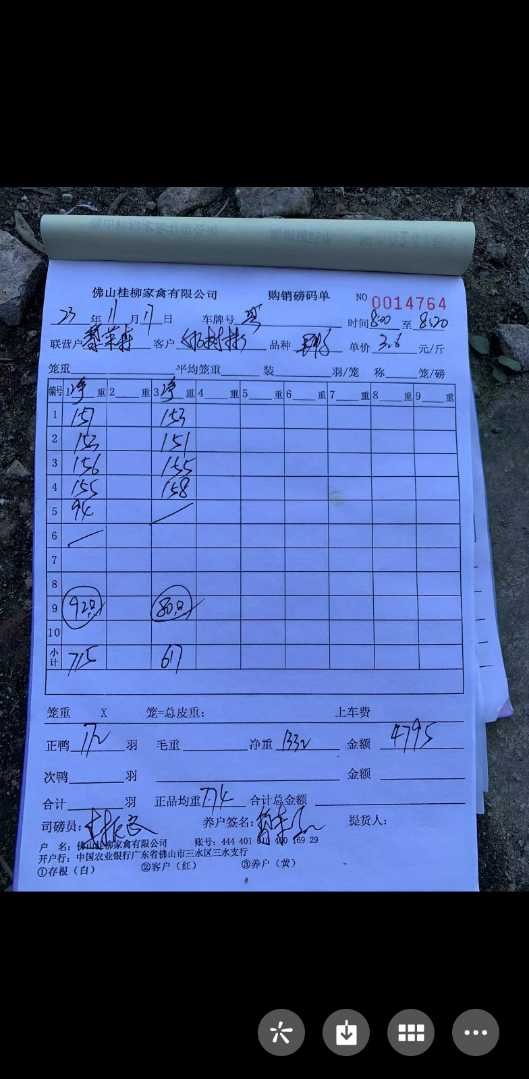 佛山桂柳家禽有限公司 购销磅码单 NO 0014764
23 年 11 月 17 日 车牌号 时间 8:00 至 8:20
联营户 客户 品种 单价 3.6 元/斤
笼重 平均笼重 装 羽/笼 称 笼/磅
编号 1 净 重 2 重 3 净 重 4 重 5 重 6 重 7 重 8 重 9 重
1 151 153
2 153 151
3 156 155
4 155 158
5 94
6
7
8
9 92只 80只
10
小计 715 617
笼重 X 笼=总皮重: 上车费
正鸭 172 羽 毛重 净重 1332 金额 4795
次鸭 羽 金额
合计 羽 正品均重 7.74 合计总金额
司磅员: 养户签名: 提货人:
户 名: 佛山桂柳家禽有限公司 账号: 444 401 69 29
开户行: 中国农业银行广东省佛山市三水区三水支行
①存根(白) ②客户(红) ③养户(黄)